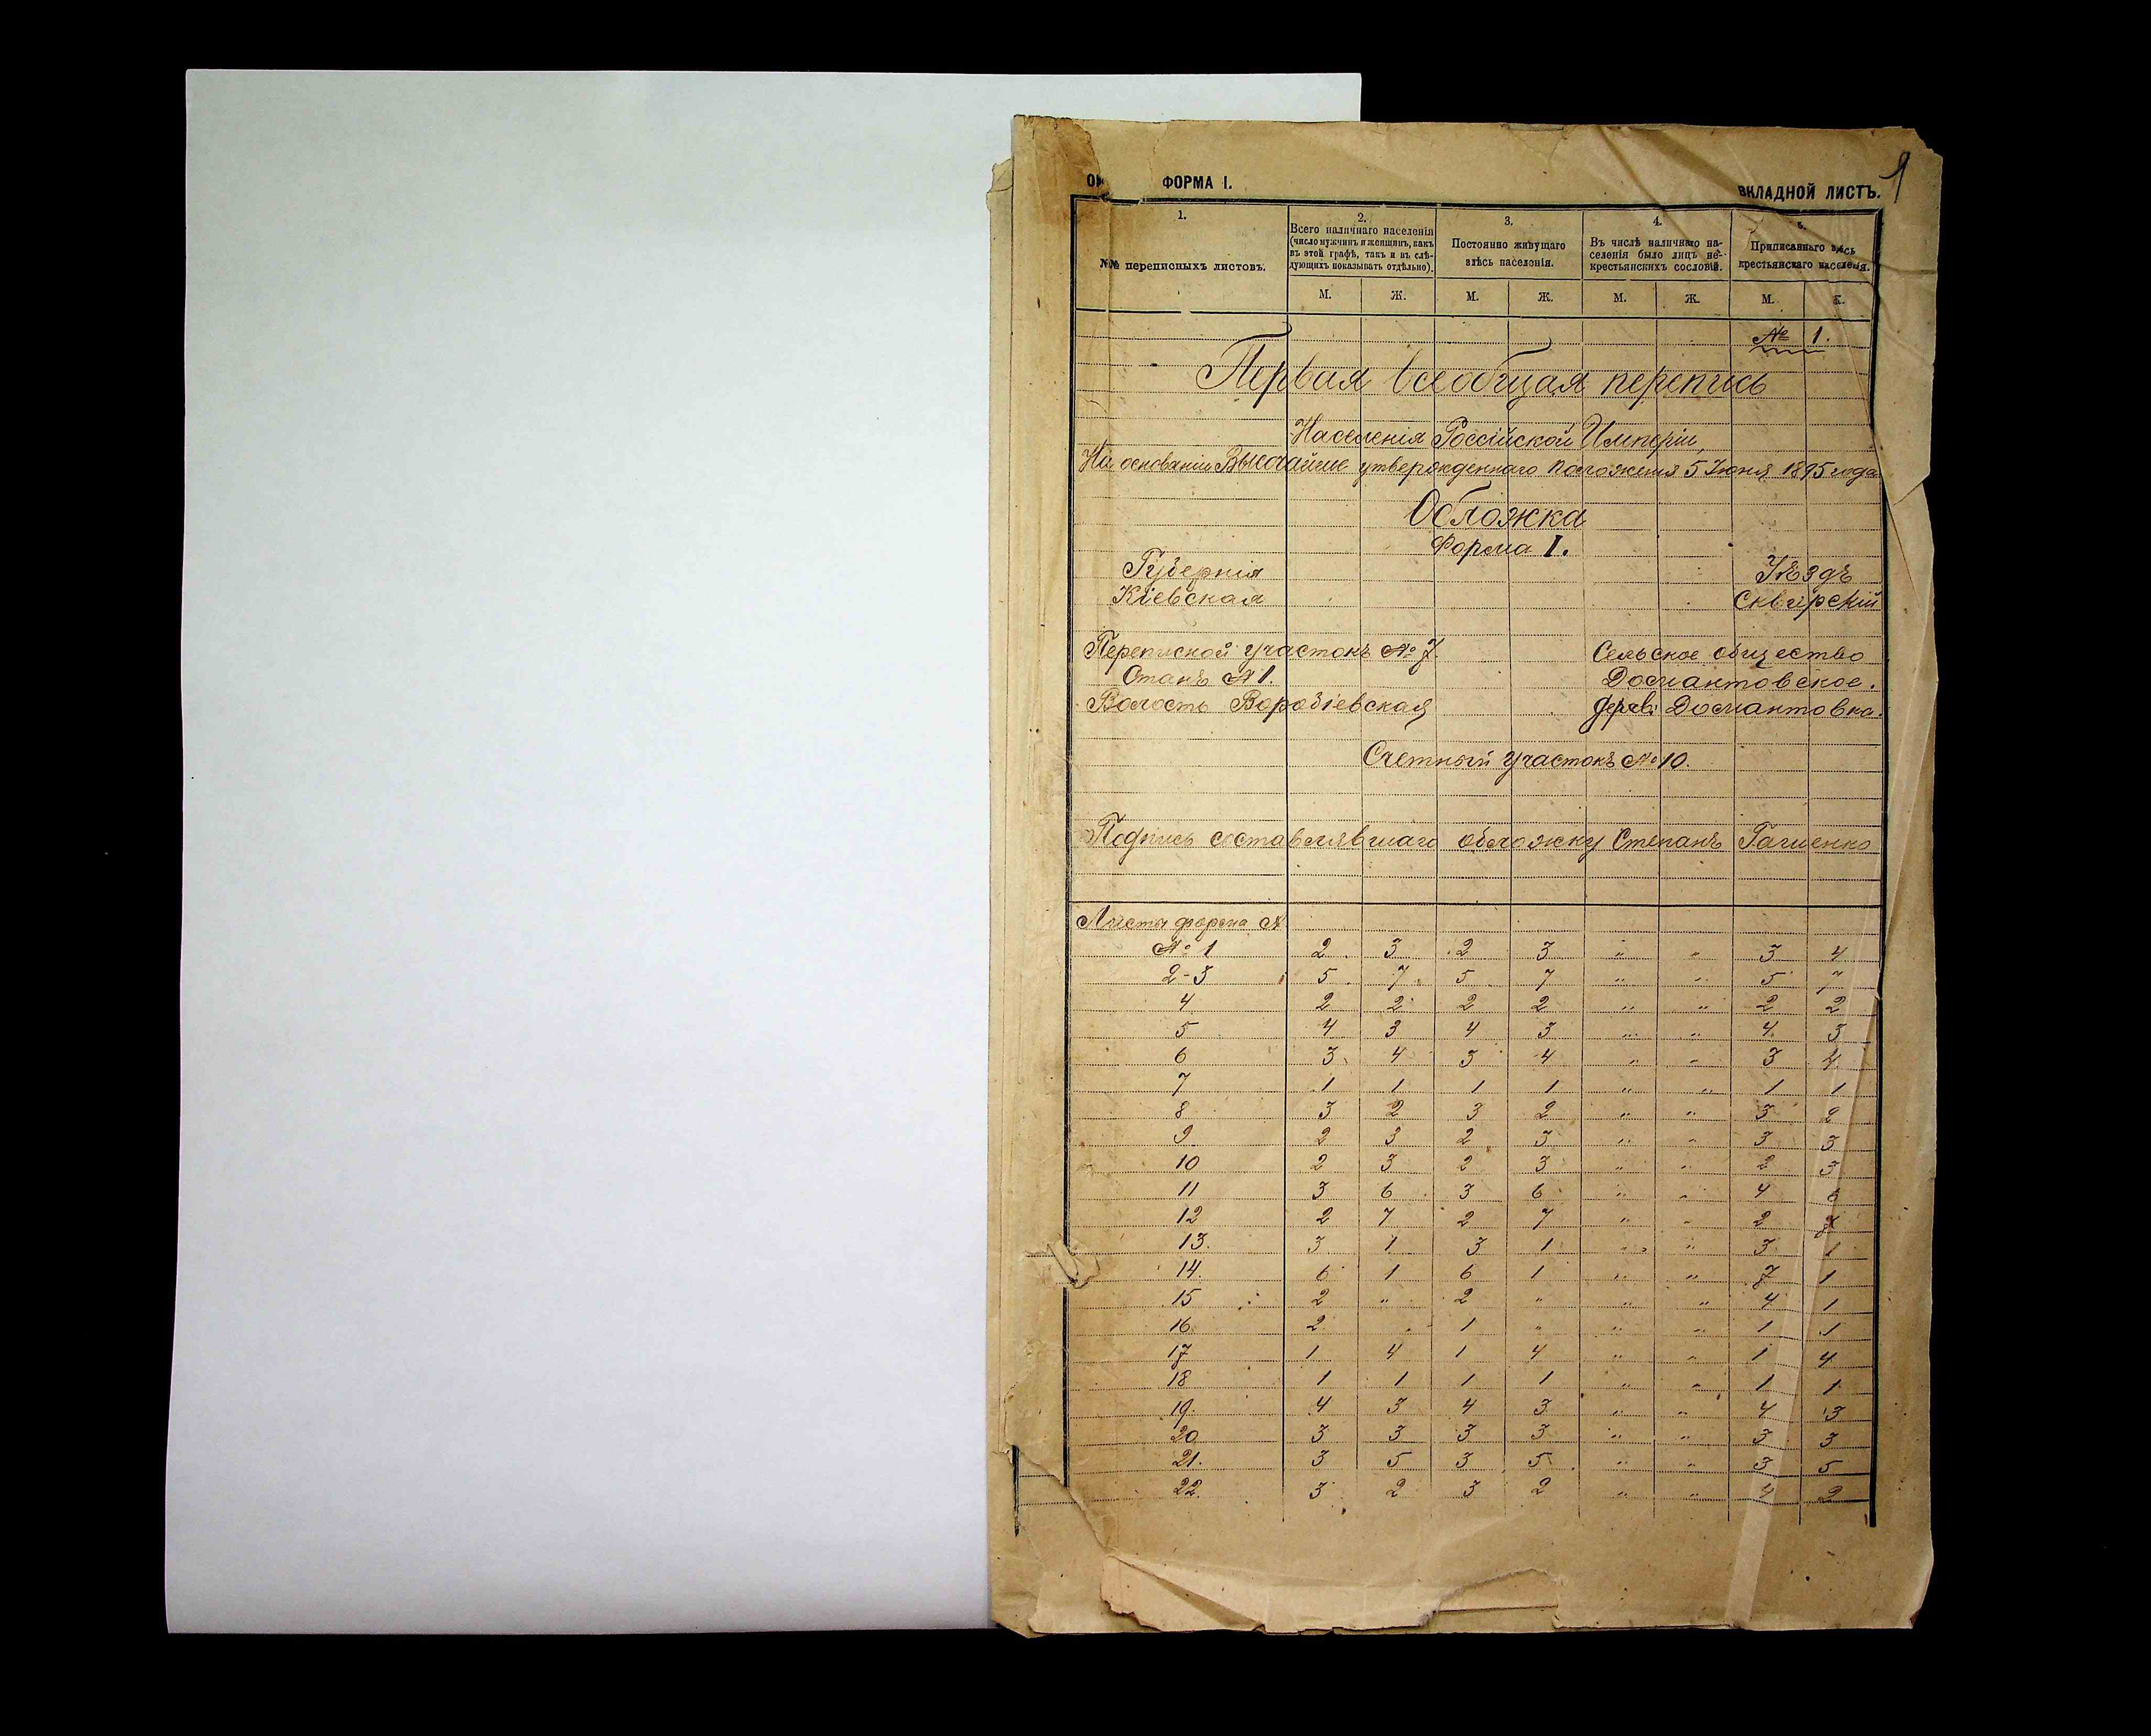 ФОРМА I.
ВКЛАДНОЙ ЛИСТЪ.
1
1.
№№ переписныхъ листовъ.
2.
Всего наличнаго населенія
(число мужчинъ и женщинъ, какъ
въ этой графѣ, такъ и въ слѣ-
дующихъ показывать отдѣльно).
3.
Постоянно живущаго
здѣсь населенія.
4.
Въ числѣ наличнаго на-
селенія было лицъ не-
крестьянскихъ сословій.
5.
Приписаннаго здѣсь
крестьянскаго населенія.
М. Ж. М. Ж. М. Ж. М. Ж.
№ 1.
Первая всеобщая перепись
Населенія Россійской Имперіи,
На основаніи Высочайше утвержденнаго положенія 5 Іюня 1895 года
Обложка
Форма I.
Губернія Уѣздъ
Кіевская Сквирскій
Переписной участокъ № 7. Сельское общество
Станъ № 1. Досмантовское.
Волость Воробіевская дерев: Досмантовка.
Счетный участокъ № 10.
Подпись составлявшаго обложку Степанъ
Листы форма А
№ 1 2 3 2 3 " " 3 4
2-3 5 7 5 7 " " 5 7
4 2 2 2 2 " " 2 2
5 4 3 4 3 " " 4 3
6 3 4 3 4 " " 3 4
7 1 1 1 1 " " 1 1
8 3 2 3 2 " " 3 2
9 2 3 2 3 " " 3 3
10 2 3 2 3 " " 2 3
11 3 6 3 6 " " 4 6
12 2 7 2 7 " " 2 7
13. 3 1 3 1 " " 3 1
14. 6 1 6 1 " " 7 1
15 2 " 2 " " " 4 1
16 2 " 1 " " " 1 1
17 1 4 1 4 " " 1 4
18 1 1 1 1 " " 1 1
19. 4 3 4 3 " " 4 3
20 3 3 3 3 " " 3 3
21. 3 5 3 5 " " 3 5
22. 3 2 3 2 " " 4 2